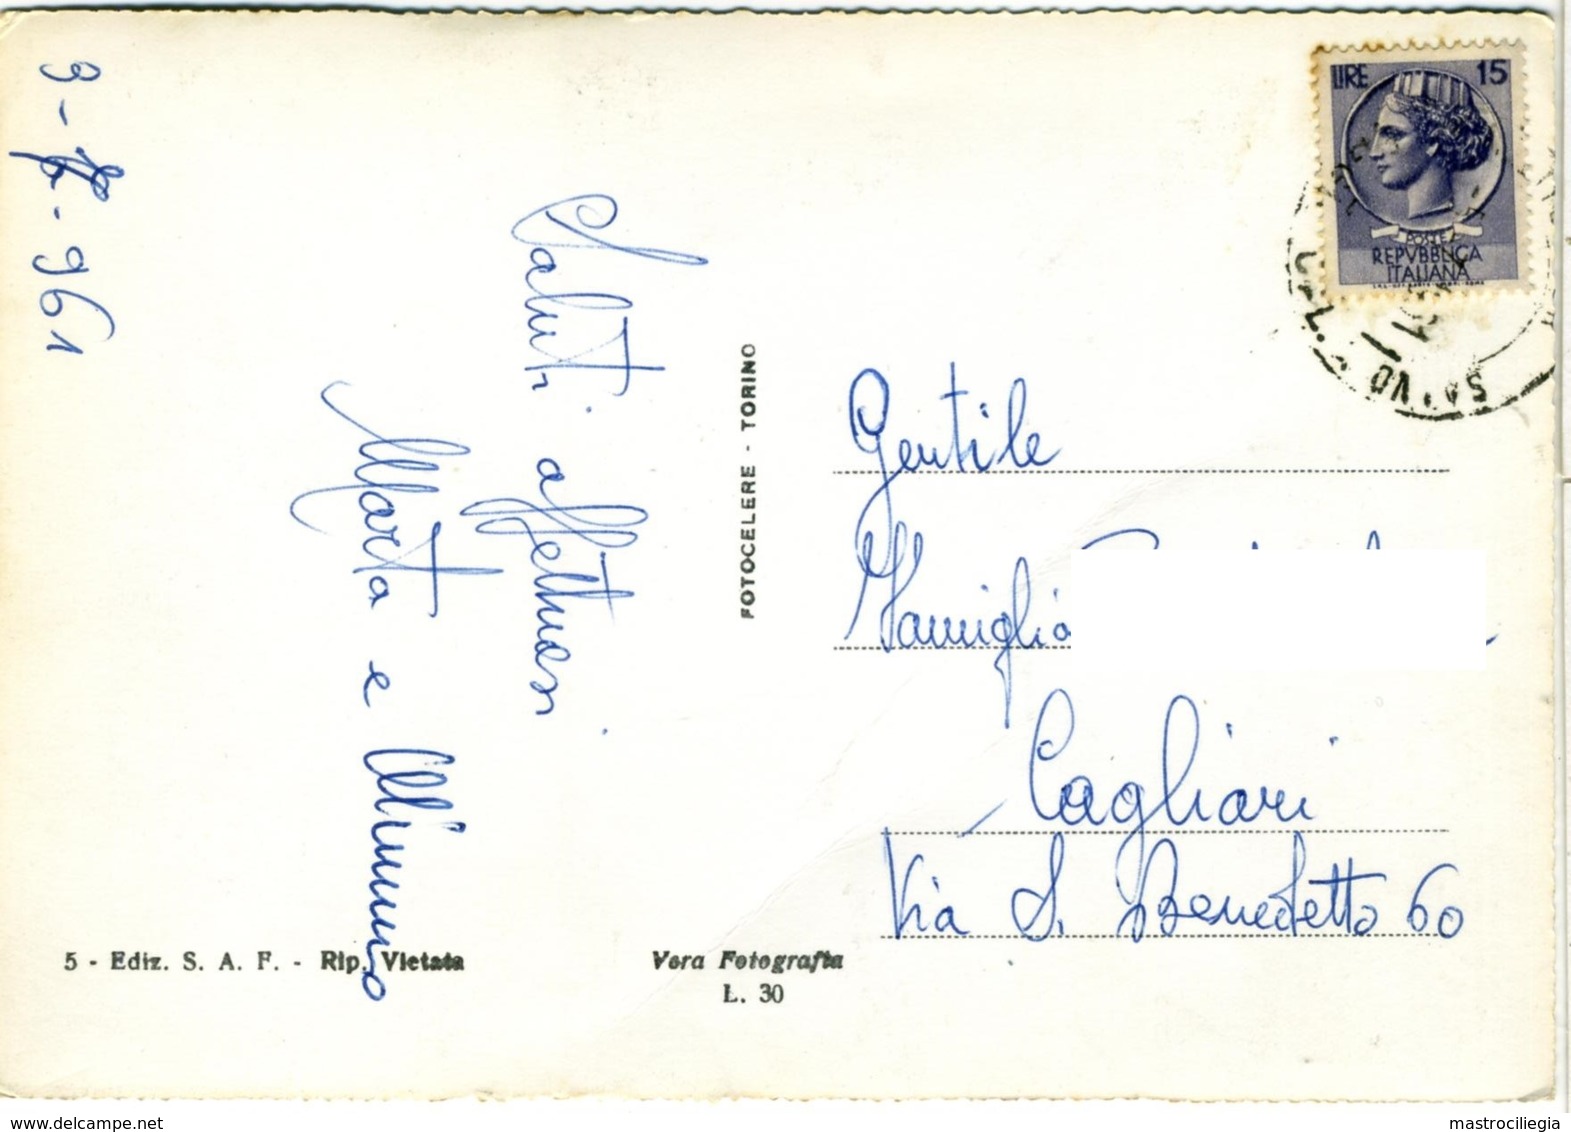 9-4-961
Saluti affettuosi.
Marta e Mimmo
FOTOCELERE - TORINO
5 - Ediz. S. A. F. - Rip. Vietata
Vera Fotografia
L. 30
LIRE 15
POSTE
REPVBBLICA
ITALIANA
Gentile
Famiglia
Cagliari
Via S. Benedetto 60
www.delcampe.net
mastrociliegia